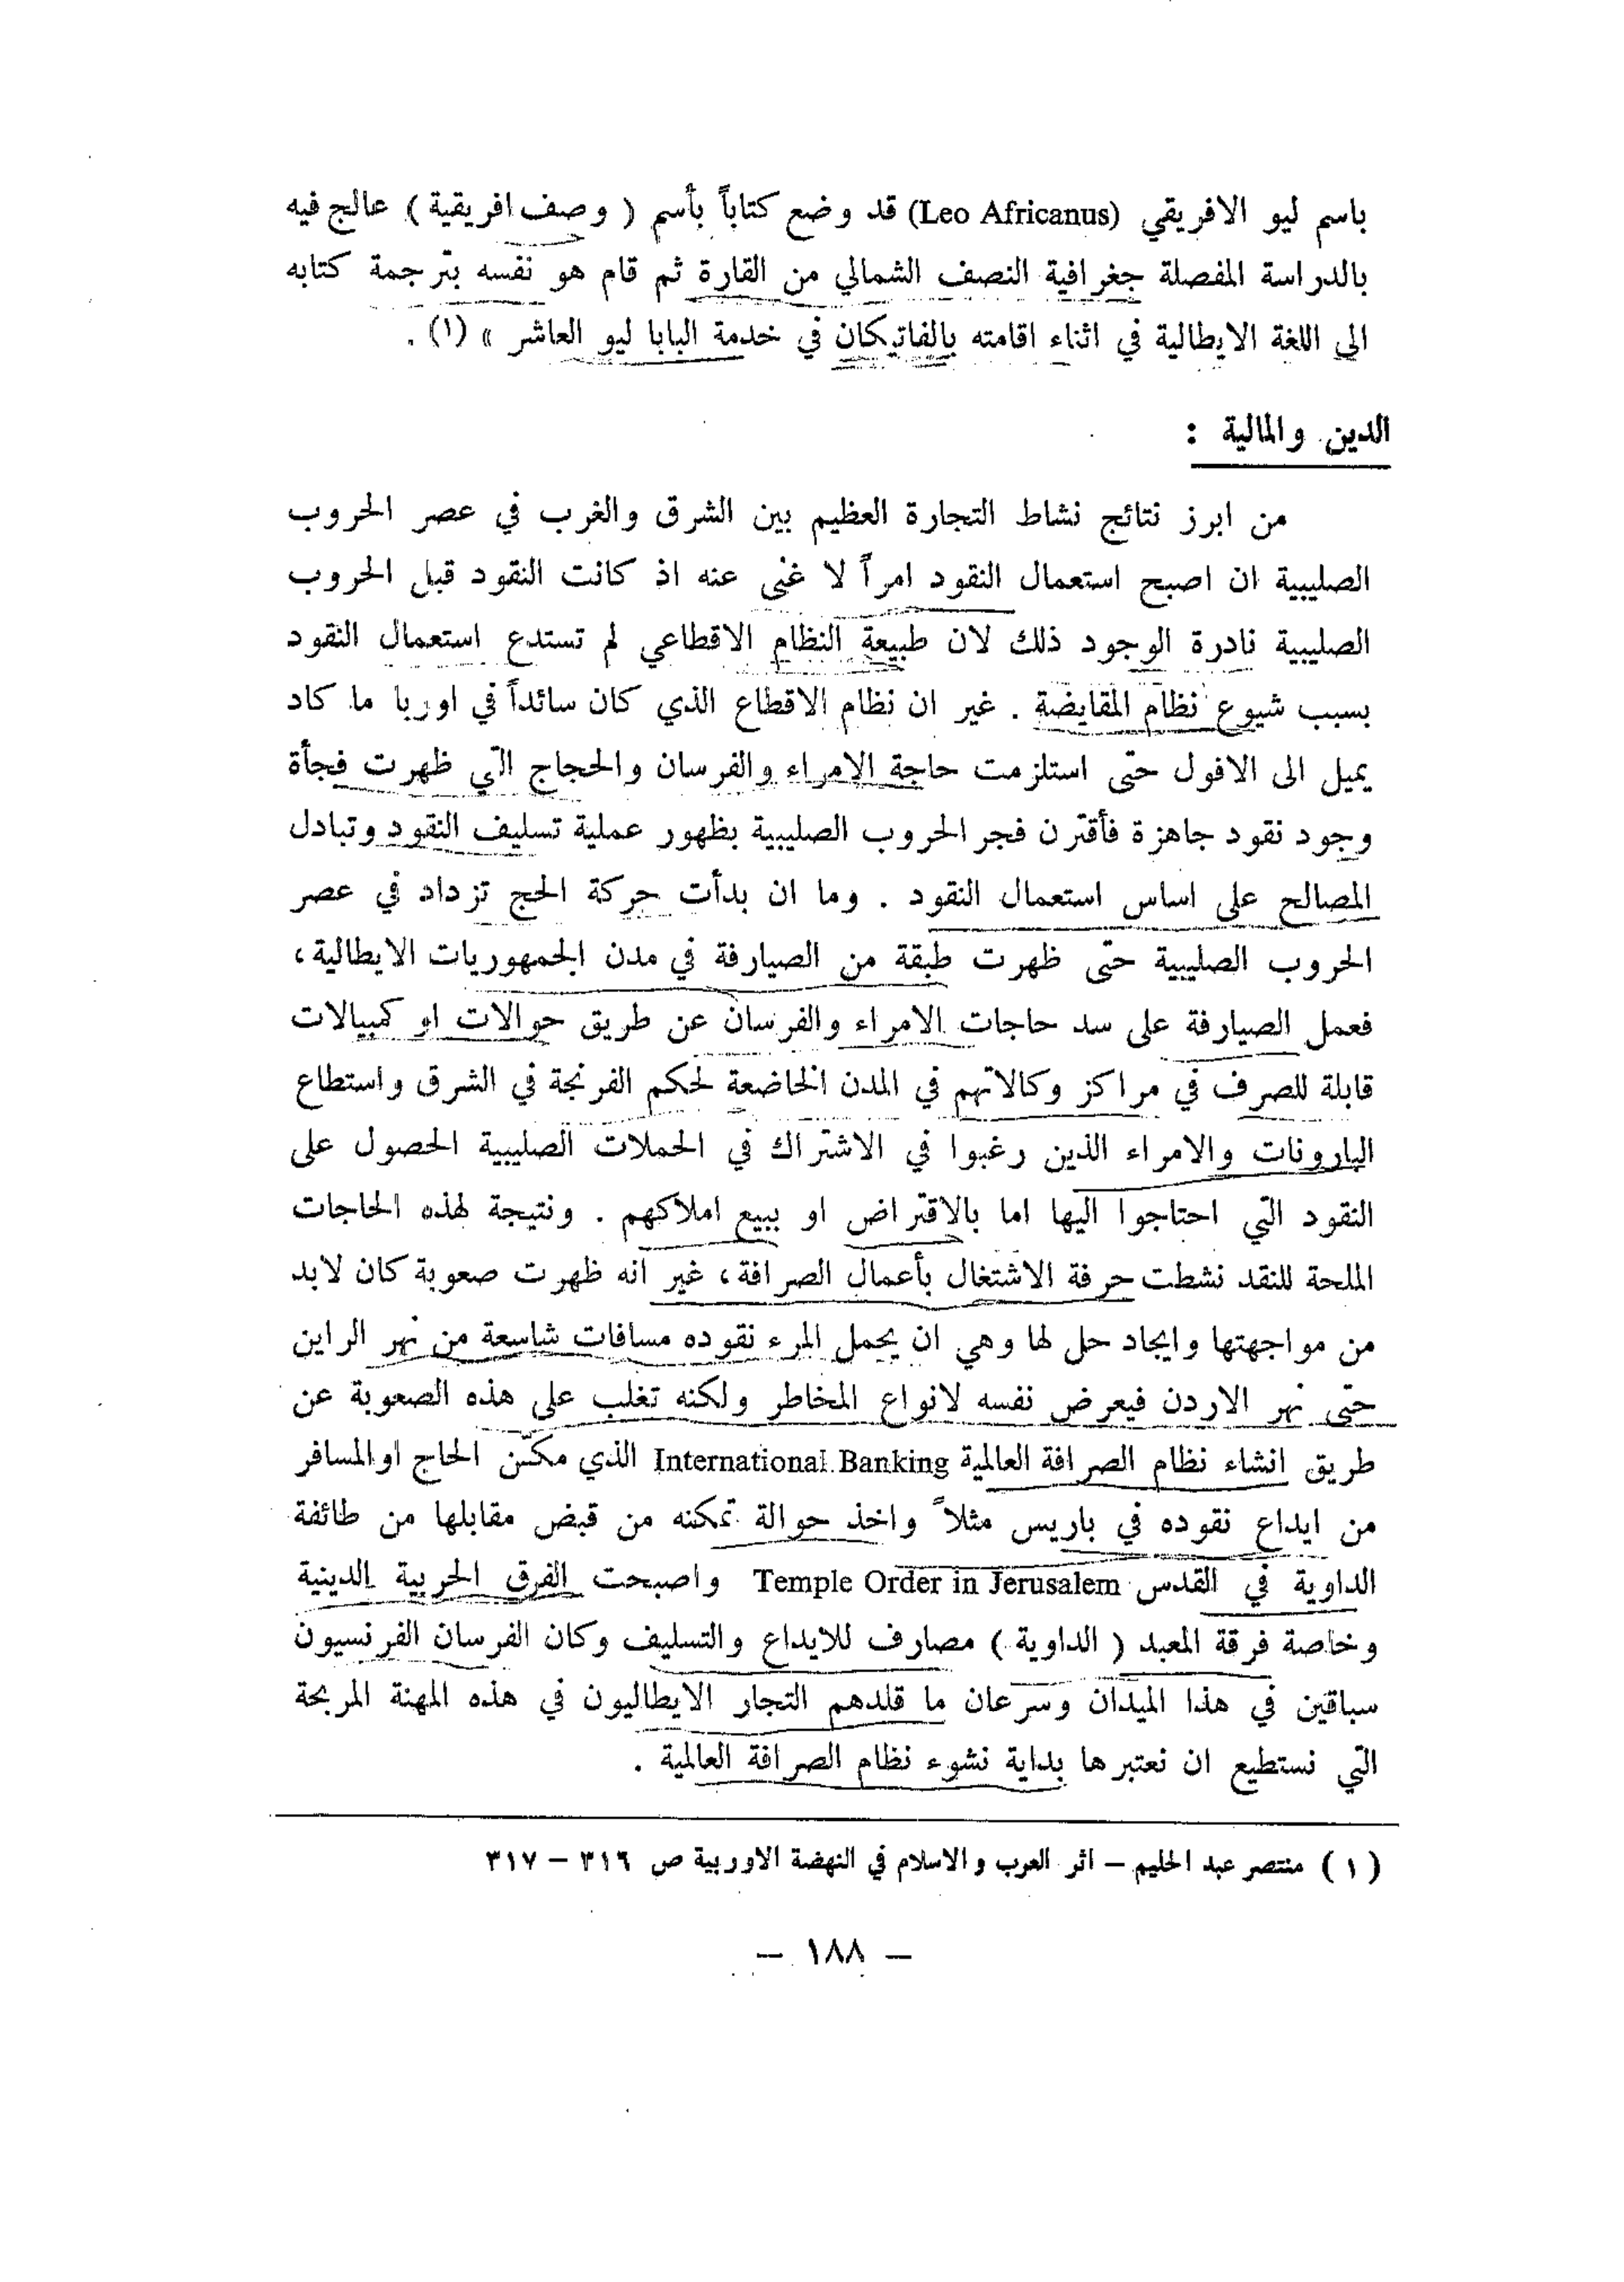 باسم ليو الافريقي (Leo Africanus) قد وضع كتاباً بأسم ( وصف افريقية ) عالج فيه
بالدراسة المفصلة جغرافية النصف الشمالي من القارة ثم قام هو نفسه بترجمة كتابه
الى اللغة الايطالية في اثناء اقامته بالفاتيكان في خدمة البابا ليو العاشر » (١) .
الدين والمالية :
من ابرز نتائج نشاط التجارة العظيم بين الشرق والغرب في عصر الحروب
الصليبية ان اصبح استعمال النقود امراً لا غنى عنه اذ كانت النقود قبل الحروب
الصليبية نادرة الوجود ذلك لان طبيعة النظام الاقطاعي لم تستدع استعمال النقود
بسبب شيوع نظام المقايضة . غير ان نظام الاقطاع الذي كان سائداً في اوربا ما كاد
يميل الى الافول حتى استلزمت حاجة الامراء والفرسان والحجاج التي ظهرت فجأة
وجود نقود جاهزة فأقترن فجر الحروب الصليبية بظهور عملية تسليف النقود وتبادل
المصالح على اساس استعمال النقود . وما ان بدأت حركة الحج تزداد في عصر
الحروب الصليبية حتى ظهرت طبقة من الصيارفة في مدن الجمهوريات الايطالية ،
فعمل الصيارفة على سد حاجات الامراء والفرسان عن طريق حوالات او كمبيالات
قابلة للصرف في مراكز وكالاتهم في المدن الخاضعة لحكم الفرنجة في الشرق واستطاع
البارونات والامراء الذين رغبوا في الاشتراك في الحملات الصليبية الحصول على
النقود التي احتاجوا اليها اما بالاقتراض او ببيع املاكهم . ونتيجة لهذه الحاجات
الملحة للنقد نشطت حرفة الاشتغال بأعمال الصرافة ، غير انه ظهرت صعوبة كان لابد
من مواجهتها وايجاد حل لها وهي ان يحمل المرء نقوده مسافات شاسعة من نهر الراين
حتى نهر الاردن فيعرض نفسه لانواع المخاطر ولكنه تغلب على هذه الصعوبة عن
طريق انشاء نظام الصرافة العالمية International Banking الذي مكّن الحاج او المسافر
من ايداع نقوده في باريس مثلاً واخذ حوالة تمكنه من قبض مقابلها من طائفة
الداوية في القدس Temple Order in Jerusalem واصبحت الفرق الحربية الدينية
وخاصة فرقة المعبد ( الداوية ) مصارف للايداع والتسليف وكان الفرسان الفرنسيون
سباقين في هذا الميدان وسرعان ما قلدهم التجار الايطاليون في هذه المهنة المربحة
التي نستطيع ان نعتبرها بداية نشوء نظام الصرافة العالمية .
( ١ ) منتصر عبد الحليم – اثر العرب والاسلام في النهضة الاوربية ص ٣١٦ – ٣١٧
– ١٨٨ –